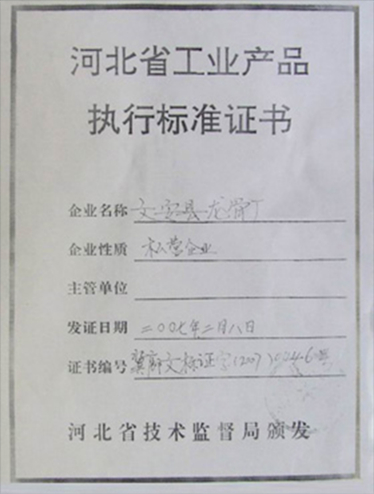 河北省工业产品
执行标准证书
企业名称 文安县龙骨厂
企业性质 私营企业
主管单位
发证日期 二00七年二月八日
证书编号 冀廊文标证字(2007)044-6号
河北省技术监督局颁发